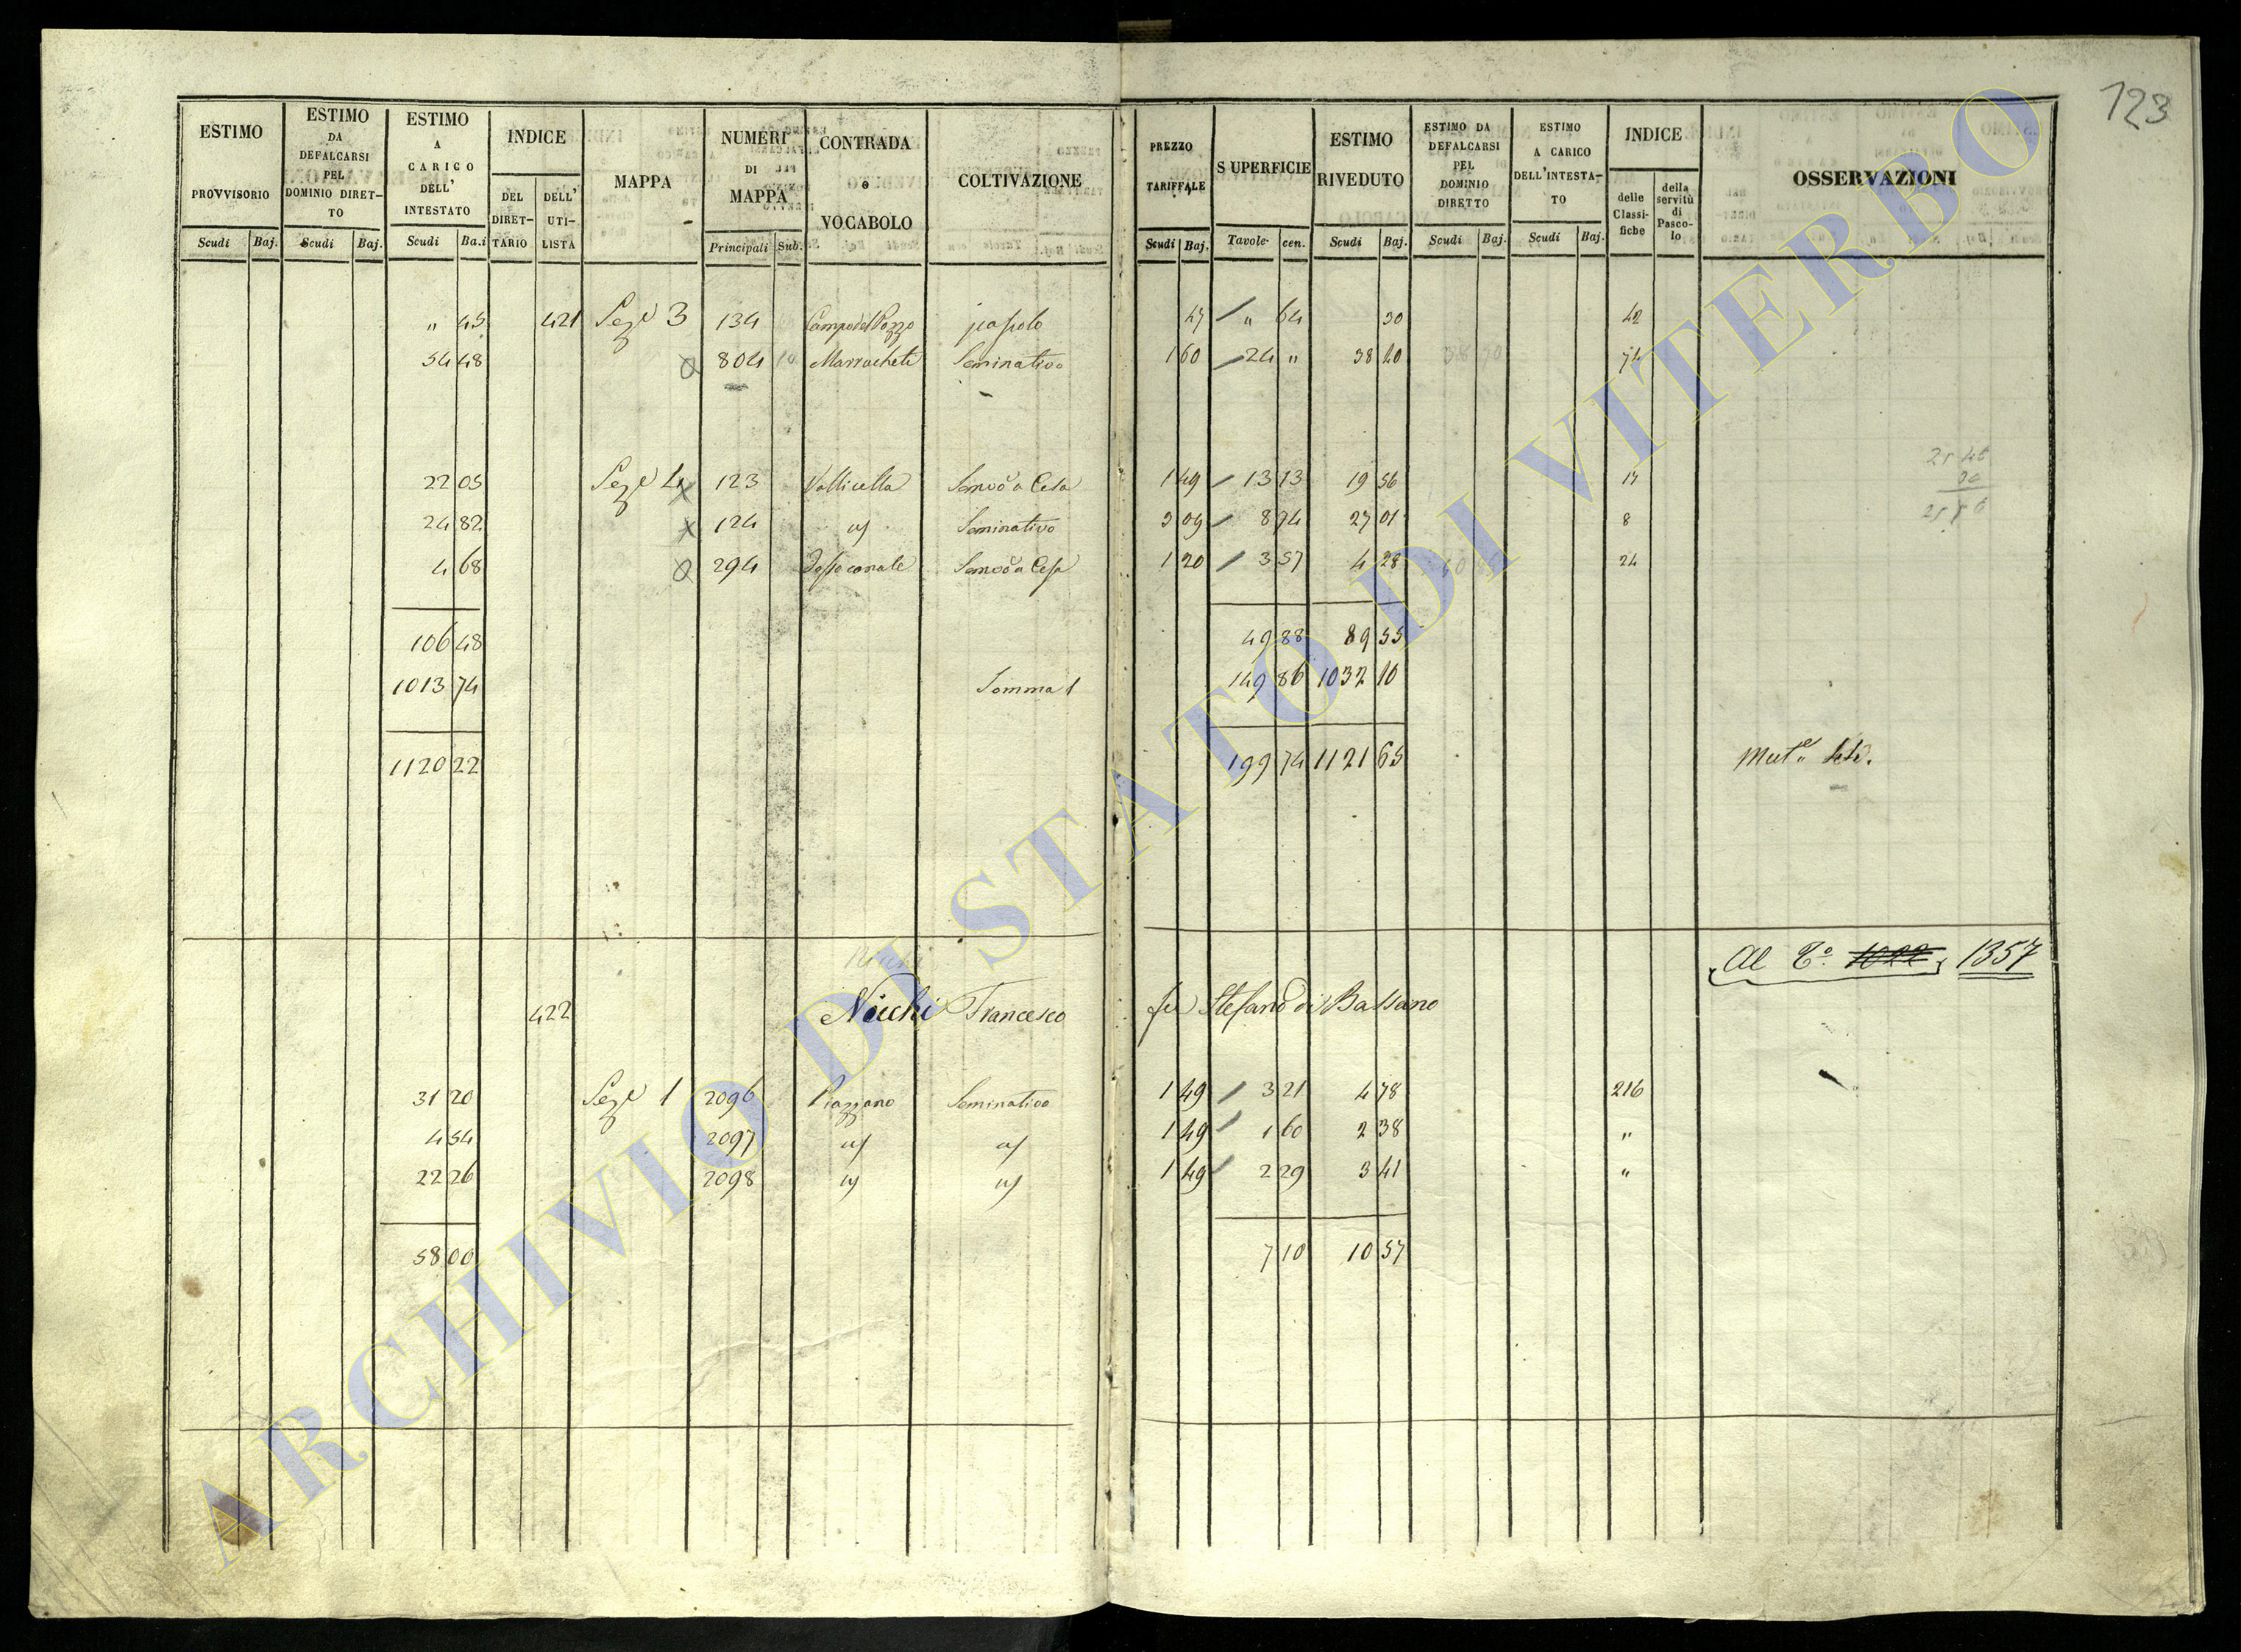 123
ESTIMO PROVVISORIO | ESTIMO DA DEFALCARSI PEL DOMINIO DIRETTO | ESTIMO A CARICO DELL' INTESTATO | INDICE DEL DIRETTARIO | DELL' UTILISTA | MAPPA | NUMERI DI MAPPA | CONTRADA o VOCABOLO | COLTIVAZIONE | PREZZO TARIFFALE | SUPERFICIE | ESTIMO RIVEDUTO | ESTIMO DA DEFALCARSI PEL DOMINIO DIRETTO | ESTIMO A CARICO DELL'INTESTATO | INDICE delle Classifiche | della servitù di Pascolo | OSSERVAZIONI
Scudi Baj. | Scudi Baj. | Scudi Ba.i | Principali Sub. | Scudi Baj. | Tavole cen. | Scudi Baj. | Scudi Baj. | Scudi Baj.
" 45 421 Sez.e 3 134 Campo del Pozzo pascolo 47 " 64 30 42
54 48 804 Marracheti Seminativo 1 60 24 " 38 40
22 05 Sez.e 4 123 Vallicella Semvo a Cesa 1 49 13 13 19 56 17
24 82 124 us Seminativo 3 09 8 74 27 01 8
4 68 294 Semvo a Cesa 1 20 3 57 4 28 24
106 48 49 88 89 55
1013 74 Somma 1 149 86 1032 10
1120 22 199 74 1121 65
Al T.o 1022 1357
422 Nicchi Francesco fu Stefano di Bassano
31 20 Sez.e 1 2096 Piazzano Seminativo 1 49 3 21 4 78 216
4 54 2097 us us 1 49 1 60 2 38 "
22 26 2098 us us 1 49 2 29 3 41 "
58 00 7 10 10 57
ARCHIVIO DI STATO DI VITERBO